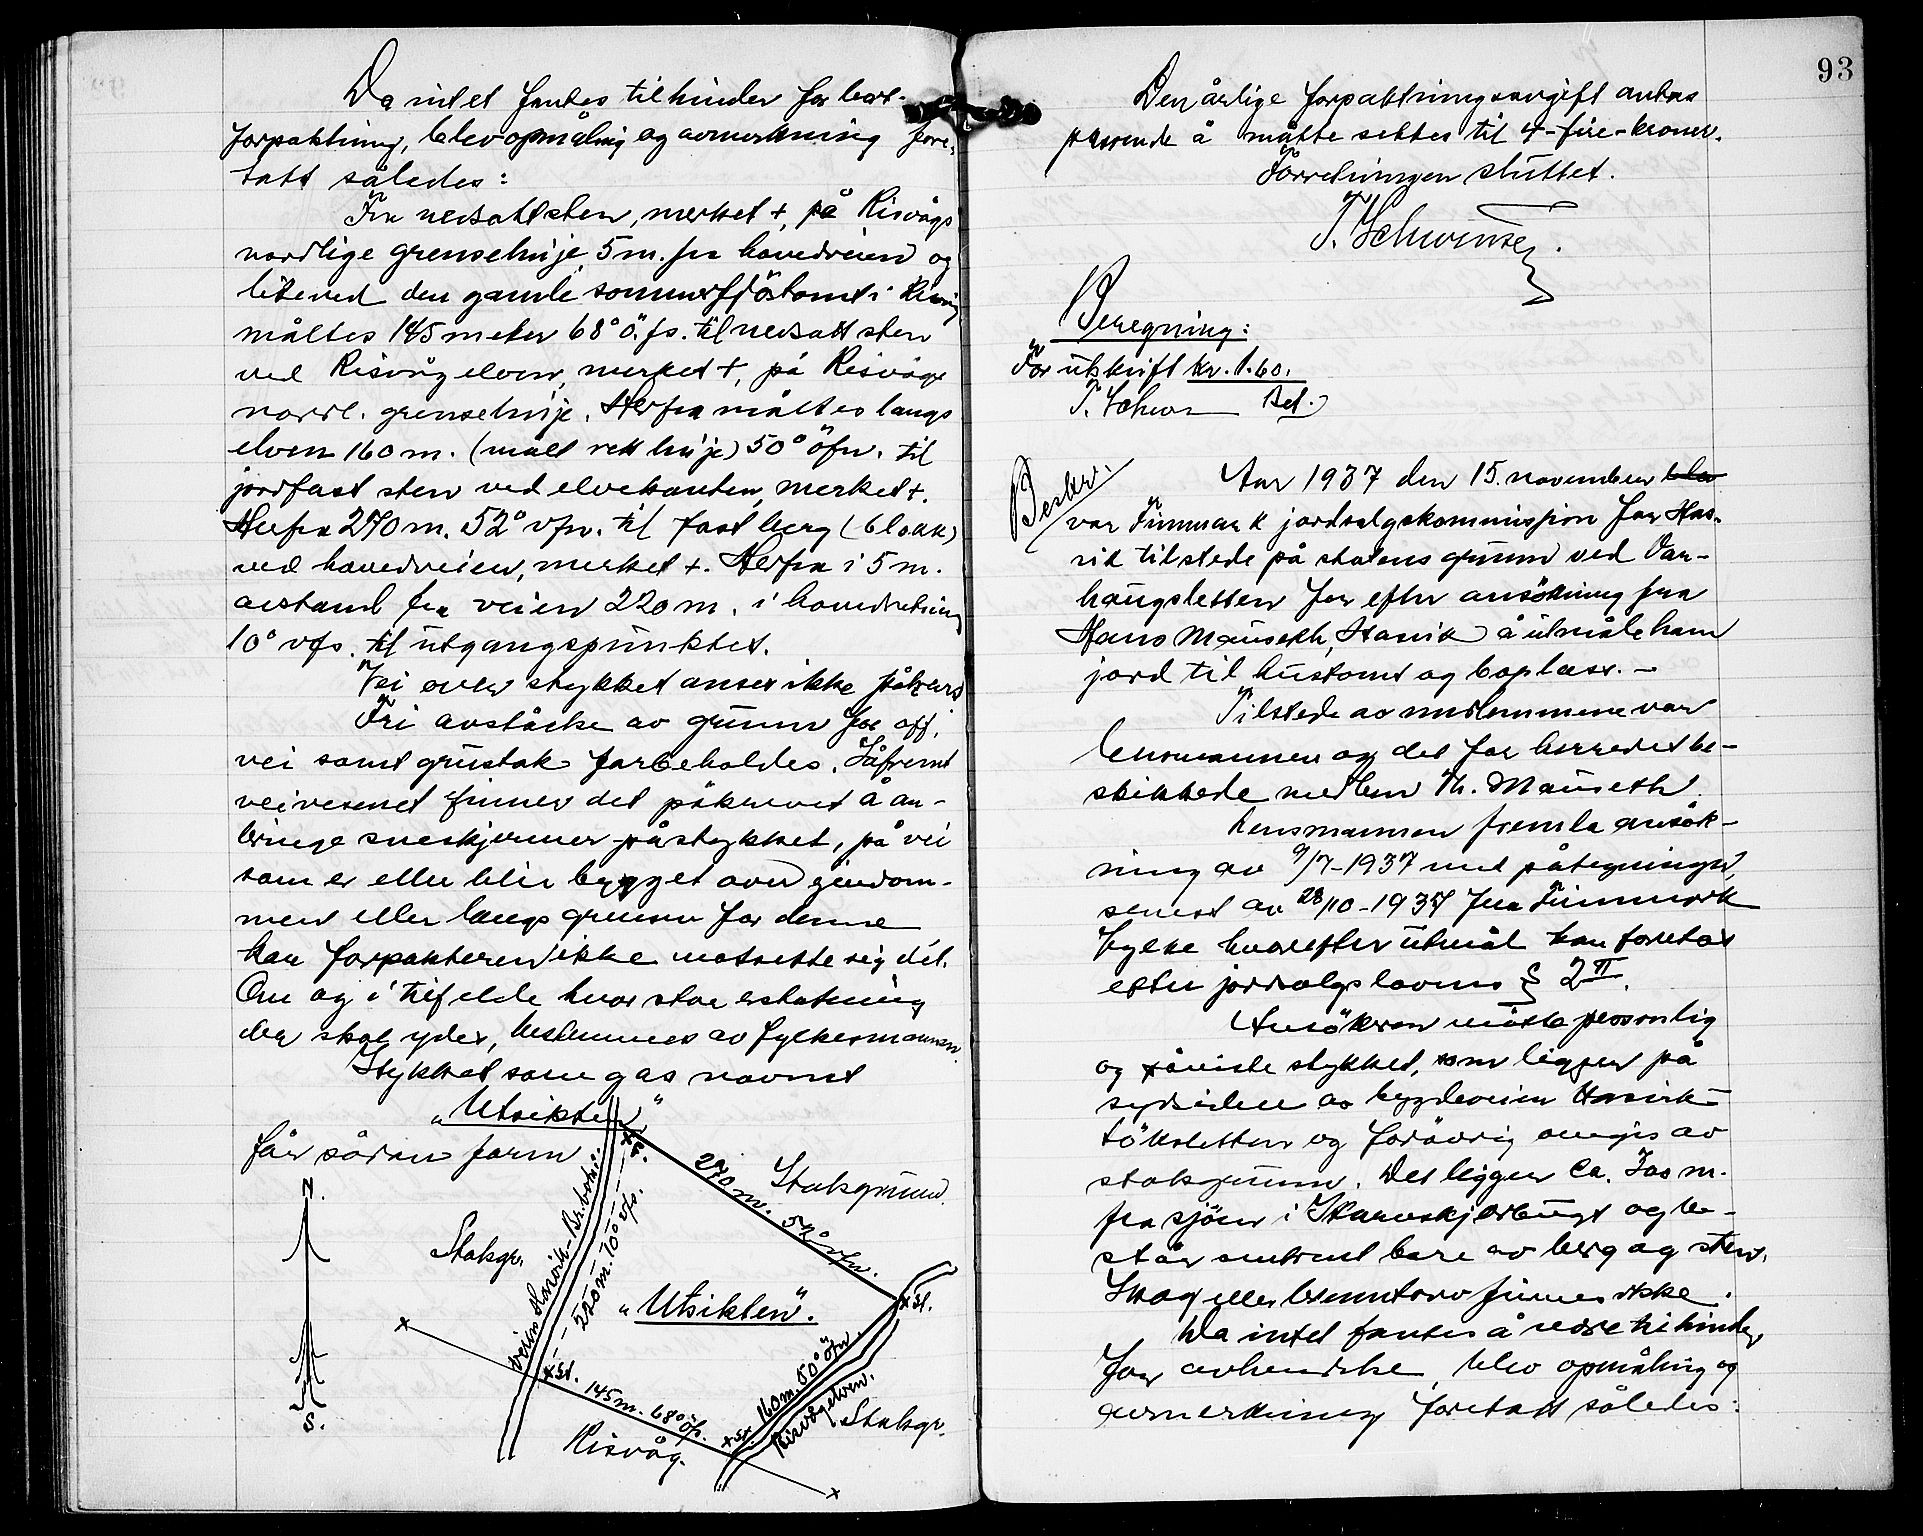 Da intet fantes til hinder for bort-
forpaktning, blev opmåling og avmerkning fore-
tatt således:
Fra nedsatt sten, merket +, på Risvågs
nordlige grenselinje, 5 m. fra hovedveien og
like ved den gamle sommerfjöstomt i
måltes 145 meter 68° ö.f.s. til nedsatt sten
ved Risvågelven, merket +, på Risvågs
nordl. grenselinje. Herfra måltes langs
elven 160 m. (målt rett linje) 50° öfn. til
jordfast sten ved elvekanten, merket +.
Herfra 270 m. 52° vfn. til fast berg (blokk)
ved hovedveien, merket +. Herfra i 5 m.
avstand fra veien 220 m. i hovedretning
10° vfs. til utgangspunktet.
Vei over stykket anses ikke påkrevd
Fri avståelse av grunn for off.
vei samt grustak forbeholdes. Såfremt
veivesenet finner det påkrevet å an-
bringe sneskjermer på stykket, på vei
som er eller blir bygget over eiendom-
men eller langs grensen for denne
kan forpakteren ikke motsette sig det.
Om og i tilfelde hvor stor erstatning
der skal ydes, bestemmes av fylkesmannen.
Stykket som gas navnet
"Utsikten"
får sådan form
N.
S.
Statsgr.
veien Hasvik-Br.botn.
220 m. 10° vfs.
st.
270 m. 52° vfn.
Statsgrunn.
"Utsikten".
x st.
x st. 145 m. 68° öfs.
x st. 160 m. 50° öfn.
Risvågelven.
Statsgr.
Risvåg.
93
Den årlige forpaktningsavgift antas
passende å måtte settes til 4-fire-kroner.
Forretningen sluttet.
Beregning:
For utskrift kr. 1.60.
Bet.
Beskr.
Aar 1937 den 15. november blev
var Finmark jordsalgskommissjon for Has-
vik tilstede på statens grunn ved Var-
haugsletten for efter ansökning fra
Hans Mauseth, Hasvik å utmåle ham
jord til hustomt og boplass. -
Tilstede av medlemmene var
lensmannen og det for herredet be-
skikkede medlem Th. Mauseth.
Lensmannen fremla ansök-
ning av 9/7-1937 med påtegninger,
senest av 28/10-1937 fra Finnmark
fylke hvorefter utmål kan foretas
efter jordsalgslovens § 2 II.
Ansökeren mötte personlig
og påviste stykket, som ligger på
sydsiden av bygdeveien Hasvik-
sletten og forövrig omgis av
statsgrunn. Det ligger ca. 300 m.
fra sjöen i Skarvskjærbugt og be-
står omtrent bare av berg og sten.
Skog eller brenntorv finnes ikke.
Da intet fantes å være til hinder
for avhendelse, blev opmåling og
avmerkning foretatt således: